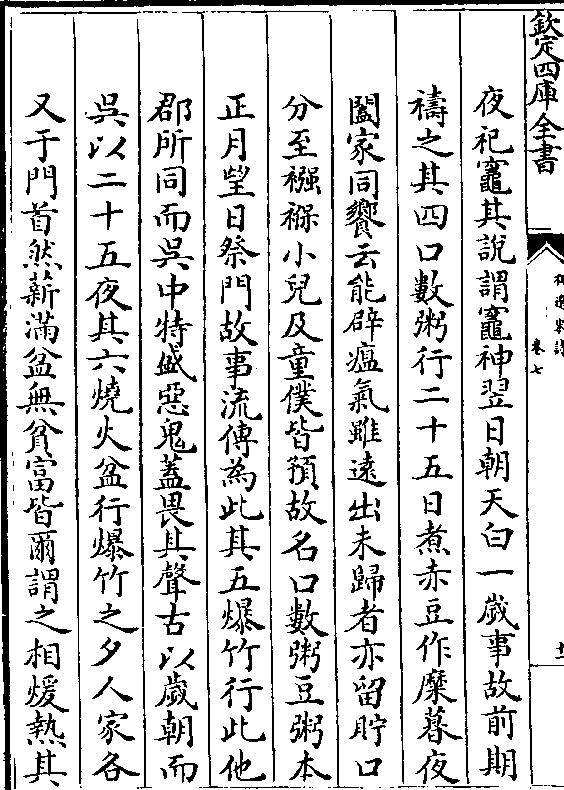 欽定四庫全書
卷七
夜祀竈其說謂竈神翌日朝天白一歲事故前期
禱之其四口數粥行二十五日煮赤豆作糜暮夜
闔家同饗云能辟瘟氣雖遠出未歸者亦留貯口
分至襁褓小兒及童僕皆預故名口數粥豆粥本
正月望日祭門故事流傳為此其五爆竹行此他
郡所同而吳中特盛惡鬼蓋畏其聲古以歲朝而
吳以二十五夜其六燒火盆行爆竹之夕人家各
又于門首然薪滿盆無貧富皆爾謂之相煖熱其